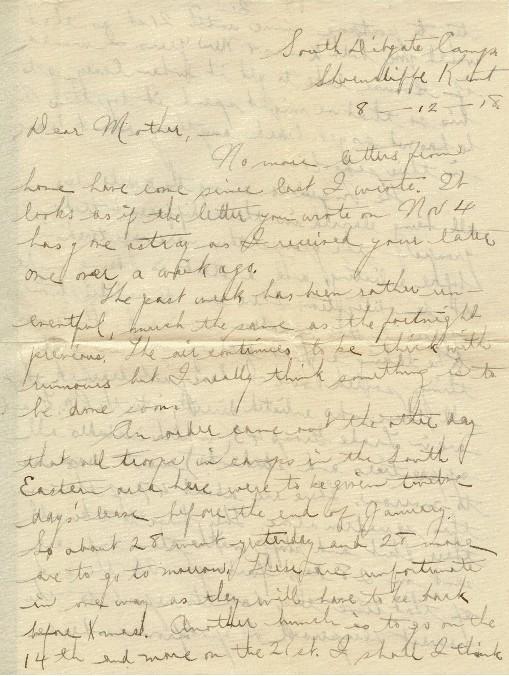 South Dibgate Camp
Shorncliffe Kent
8 — 12 — 18
Dear Mother, —
No more letters from
home have come since last I wrote. It
looks as if the letter you wrote on Nov 4
has gone astray as I received your later
one over a week ago.
The past week has been rather un-
eventful, much the same as the fortnight
previous. The air continues to be thick with
rumours but I really think something is to
be done soon.
An order came out the other day
that all troops in camps in the South
Eastern area here were to be given twelve
days' leave before the end of January.
So about 28 went yesterday and 25 more
are to go to morrow. These are unfortunate
in one way as they will have to be back
before Xmas. Another bunch is to go on the
14th and more on the 21st. I shall I think